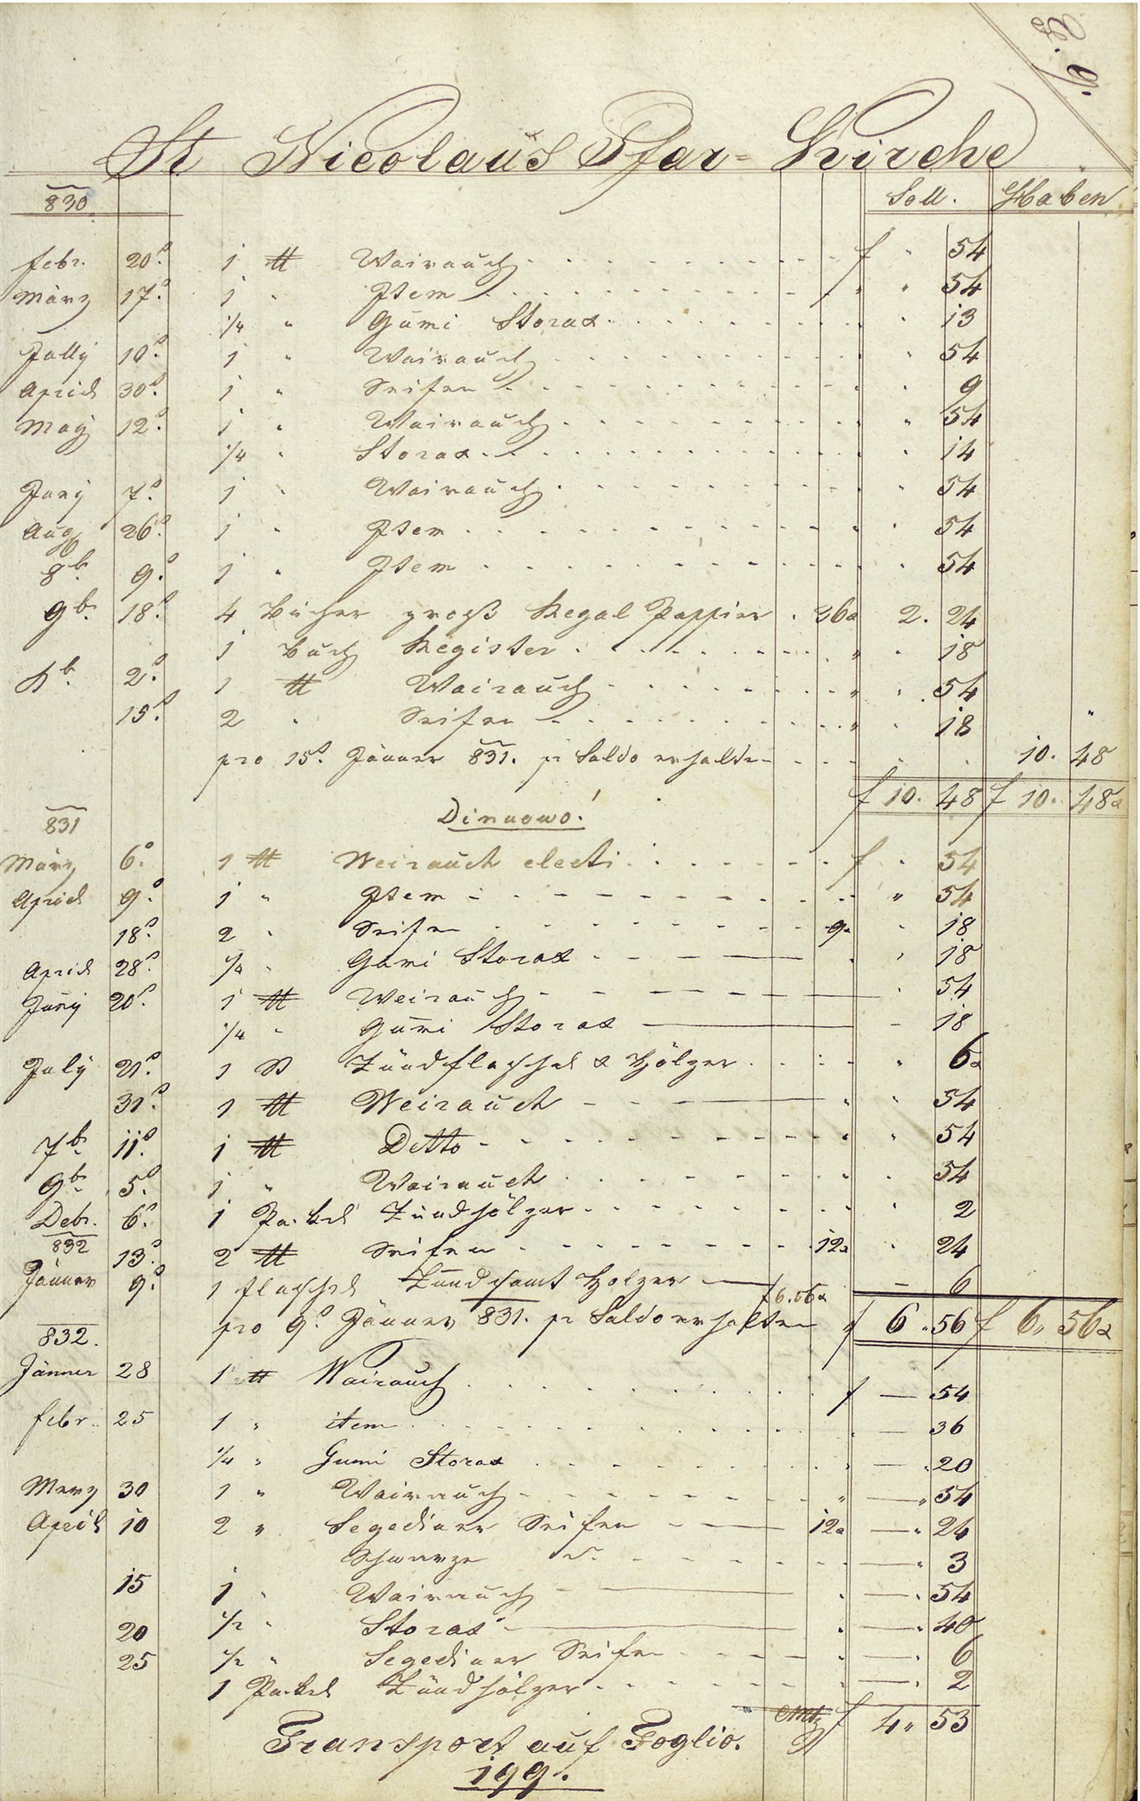 St Nicolaus Pfar= Kirche
830. Soll. Haben
febr. 20. 1 ℔ Wairauch f " 54
März 17. 1 " Item " " 54
1/4 " Gumi Storax " 13
Jully 10. 1 " Wairauch " 54
April 30. 1 " Seifen " 9
May 12. 1 " Wairauch " 54
1/4 " Storax " 14
Juny 7. 1 " Wairauch " 54
Aug 26. 1 " Item " 54
8br. 9. 1 " Item " 54
9br. 18. 4 Bücher groß Regal Pappier 36 2. 24
1 Buch Register " 18
Xbr. 2. 1 ℔ Wairauch " 54
15. 2 " Seifen " 18
pro 15. Jänner 831. pr Saldo erhalten 10. 48
f 10. 48 f 10. 48
831
März 6. 1 ℔ Weirauch electi f " 54
April 9. 1 " Item " 54
18. 2 " Seifen 9 " 18
April 28. 1/4 " Gumi Storax " 18
Juny 20. 1 ℔ Weirauch " 54
1/4 " Gumi Storax – 18
July 21. 1 St Zündflaschel & Hölzer " 6
31. 1 ℔ Weirauch " 54
7br. 11. 1 ℔ Detto " 54
9br. 5. 1 " Wairauch " 54
Debr. 6. 1 Packel Zündhölzer " 2
832 13. 2 ℔ Seifen 12 " 24
Jänner 9. 1 flaschel Zünd samt Holzer – 6
f 6.56
pro 9. Jänner 831. pr Saldo erhalten f 6. 56 f 6. 56
832.
Jänner 28 1 ℔ Wairauch f — 54
febr. 25 1 " item — 36
1/4 " Gumi Storax — 20
Merz 30 1 " Wairauch — 54
April 10 2 " Segediner Seifen 12 — 24
Schwarze d. — 3
15 1 " Wairauch — 54
20 1/2 " Storax — 40
25 1/2 " Segediner Seifen — 6
1 Packel Zündhölzer — 2
f 4. 53
Transport auf Foglio.
199.